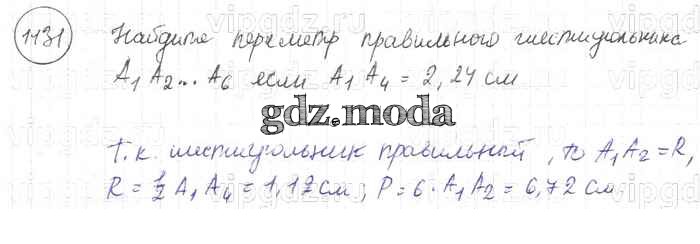 1131 Найдите периметр правильного шестиугольника
A₁A₂... A₆ если A₁A₄ = 2,24 см
gdz.moda
Т.к. шестиугольник правильный, то A₁A₂ = R,
R = ½ A₁A₄ = 1,12 см; P = 6 · A₁A₂ = 6,72 см.